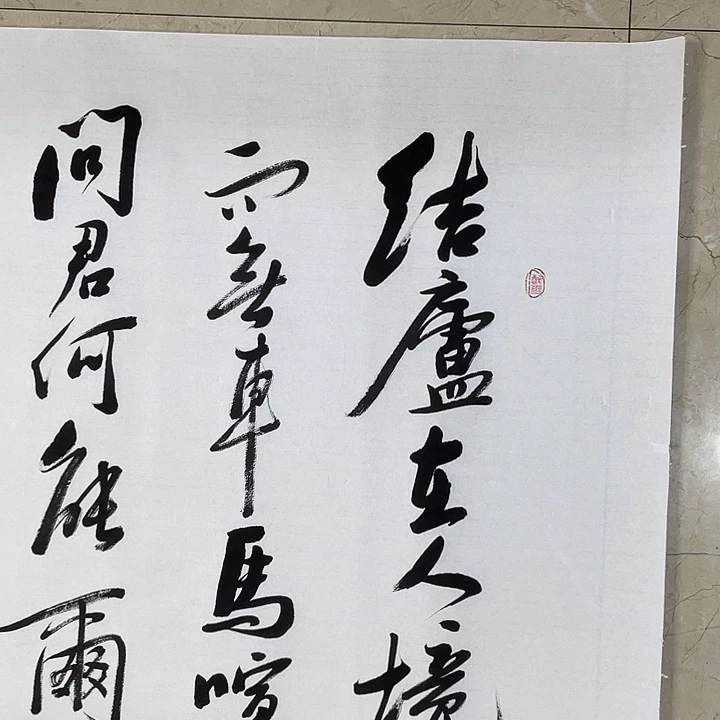 結廬在人境
而無車馬喧
問君何能爾